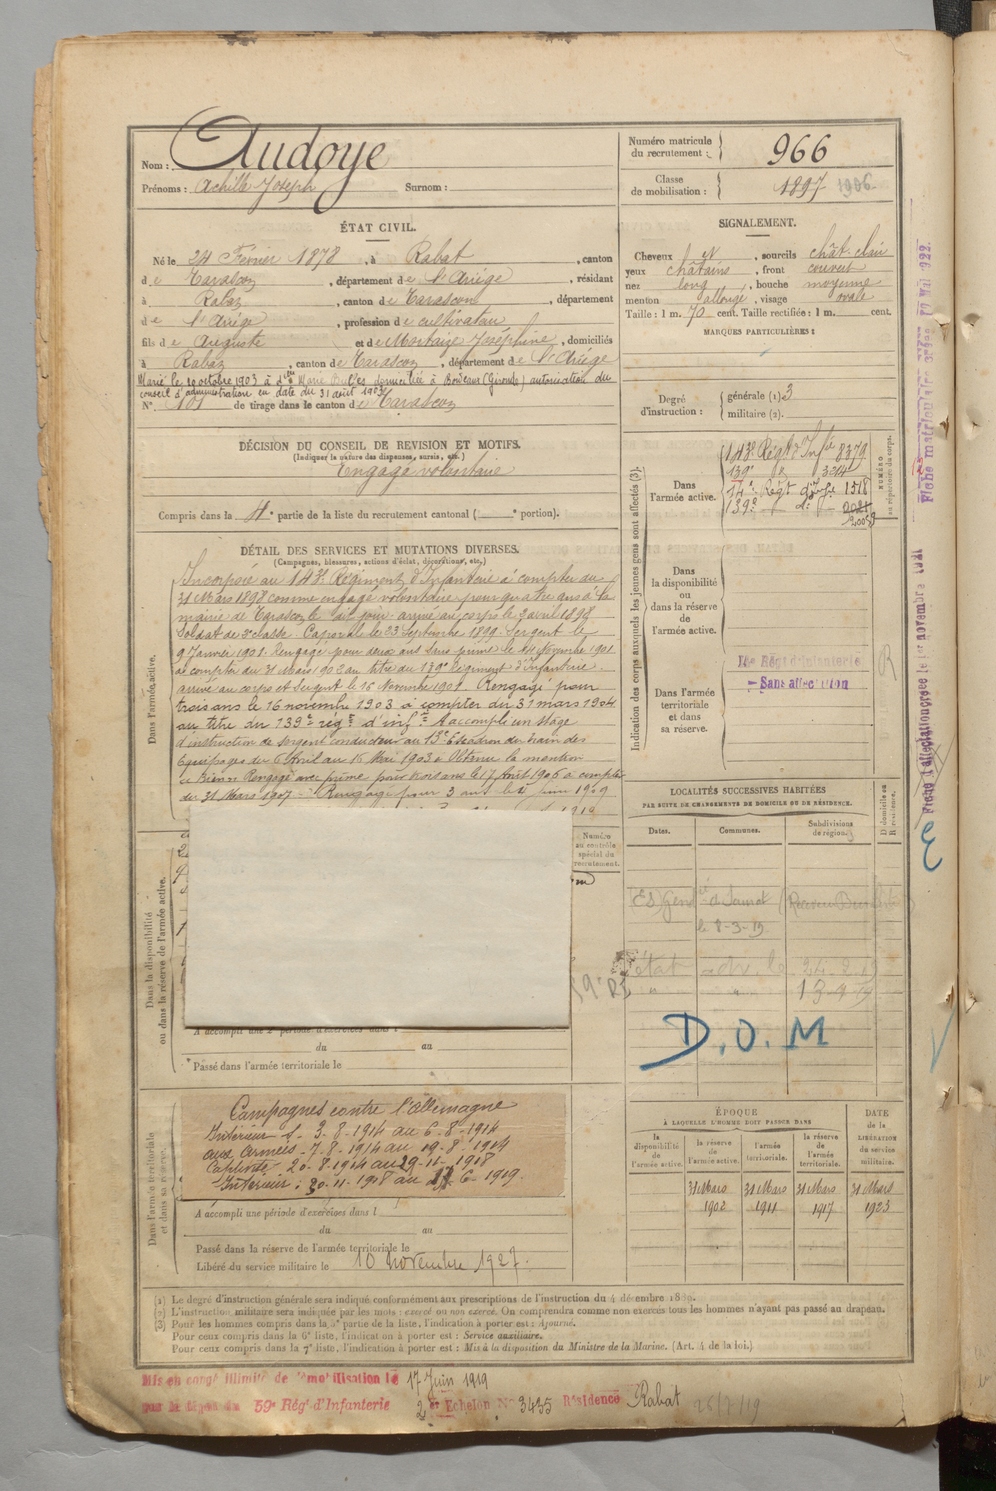 Nom : Audoye
Prénoms : Achille Joseph Surnom :
Numéro matricule du recrutement : 966
Classe de mobilisation : 1897 1906
ÉTAT CIVIL.
Né le 24 Février 1878, à Rabat, canton
de Tarascon, département de l'Ariège, résidant
à Rabat, canton de Tarascon, département
de l'Ariège, profession de cultivateur
fils de Auguste et de Joséphine, domiciliés
à Rabat, canton de Tarascon, département de l'Ariège
Marié le 10 octobre 1903 à Marie domiciliée à Bordeaux (Gironde) autorisation du
conseil d'administration en date du 31 août 1903
N° 101 de tirage dans le canton de Tarascon
SIGNALEMENT.
Cheveux et, sourcils chât. clair
yeux châtains, front couvert
nez long, bouche moyenne
menton allongé, visage ovale
Taille : 1 m. 70 cent. Taille rectifiée : 1 m. cent.
MARQUES PARTICULIÈRES :
Degré d'instruction : générale (1) 3
militaire (2).
DÉCISION DU CONSEIL DE REVISION ET MOTIFS.
(Indiquer la nature des dispenses, sursis, etc.)
Engagé volontaire
Compris dans la 4e partie de la liste du recrutement cantonal ( e portion).
Indication des corps auxquels les jeunes gens sont affectés (3).
NUMÉRO au répertoire du corps.
Dans l'armée active.
143e Régt Infie 8379
139e de
14e Régt d'Infie 1518
139e do
Dans la disponibilité ou dans la réserve de l'armée active.
Dans l'armée territoriale et dans sa réserve.
14e Régt d'infanterie
Sans affectation
DÉTAIL DES SERVICES ET MUTATIONS DIVERSES.
(Campagnes, blessures, actions d'éclat, décorations, etc.)
Dans l'armée active.
Incorporé au 143e Régiment d'Infanterie à compter du
31 Mars 1898 comme engagé volontaire pour quatre ans à la
mairie de Tarascon le dit jour arrivé au corps le 2 avril 1898
Soldat de 2e classe. Caporal le 23 Septembre 1899. Sergent le
9 Janvier 1901. Rengagé pour deux ans sans prime le Novembre 1901
à compter du 31 Mars 1902 au titre du 139e Régiment d'Infanterie.
arrivé au corps et Sergent le 16 Novembre 1901. Rengagé pour
trois ans le 16 novembre 1903 à compter du 31 mars 1904
au titre du 139e régt d'infie. A accompli un stage
d'instruction de sergent conducteur au 13e Escadron du train des
Equipages du 6 Avril au 16 Mai 1903. Obtenu la mention
Bien. Rengagé avec prime pour trois ans le 17 Août 1906 à compter
du 31 Mars 1907. Rengagé pour 3 ans le Juin 1909
LOCALITÉS SUCCESSIVES HABITÉES
PAR SUITE DE CHANGEMENTS DE DOMICILE OU DE RÉSIDENCE.
Dates. Communes. Subdivisions de région. D domicile ou R résidence.
Numéro au contrôle spécial du recrutement.
Dans la disponibilité ou dans la réserve de l'armée active.
le 8-3-19
24-2-19
13-9-19
D.O.M
A accompli une 2e période d'exercices dans l
du au
Passé dans l'armée territoriale le
Dans l'armée territoriale et dans sa réserve.
Campagnes contre l'Allemagne
Intérieur : 3-8-1914 au 6-8-1914
aux Armées - 7-8-1914 au 19-8-1914
Captivité - 20-8-1914 au 29-11-1918
Intérieur : 30-11-1918 au 6-1919.
A accompli une période d'exercices dans l
du au
Passé dans la réserve de l'armée territoriale le
Libéré du service militaire le 10 novembre 1927.
ÉPOQUE
À LAQUELLE L'HOMME DOIT PASSER DANS
la disponibilité de l'armée active.
la réserve de l'armée active.
l'armée territoriale.
la réserve de l'armée territoriale.
DATE de la LIBÉRATION du service militaire.
31 Mars 1902
31 Mars 1911
31 Mars 1917
31 Mars 1923
(1) Le degré d'instruction générale sera indiqué conformément aux prescriptions de l'instruction du 4 décembre 1889.
(2) L'instruction militaire sera indiquée par les mots : exercé ou non exercé. On comprendra comme non exercés tous les hommes n'ayant pas passé au drapeau.
(3) Pour les hommes compris dans la 5e partie de la liste, l'indication à porter est : Ajourné.
Pour ceux compris dans la 6e liste, l'indication à porter est : Service auxiliaire.
Pour ceux compris dans la 7e liste, l'indication à porter est : Mis à la disposition du Ministre de la Marine. (Art. 4 de la loi.)
Mis en congé illimité de démobilisation le 17 Juin 1919
par le dépôt du 59e Régt d'Infanterie 2e Echelon N° 3435 Résidence Rabat 26/7/19